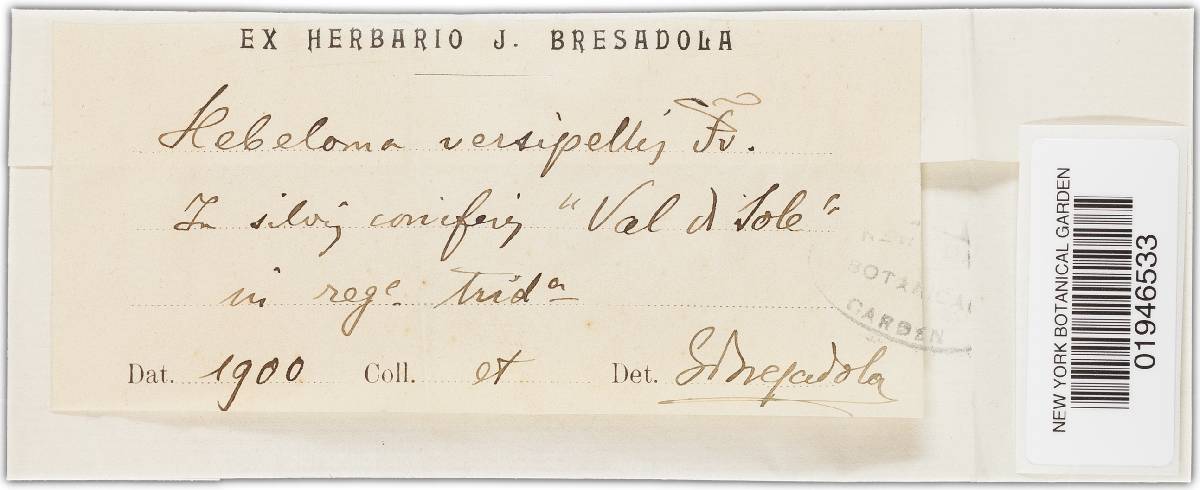 EX HERBARIO J. BRESADOLA
Hebeloma versipellis Fr.
In silvis coniferis "Val di Sole"
in rege. trida
Dat. 1900 Coll. et Det. GBresadola
NEW YORK
BOTANICAL
GARDEN
NEW YORK BOTANICAL GARDEN
01946533